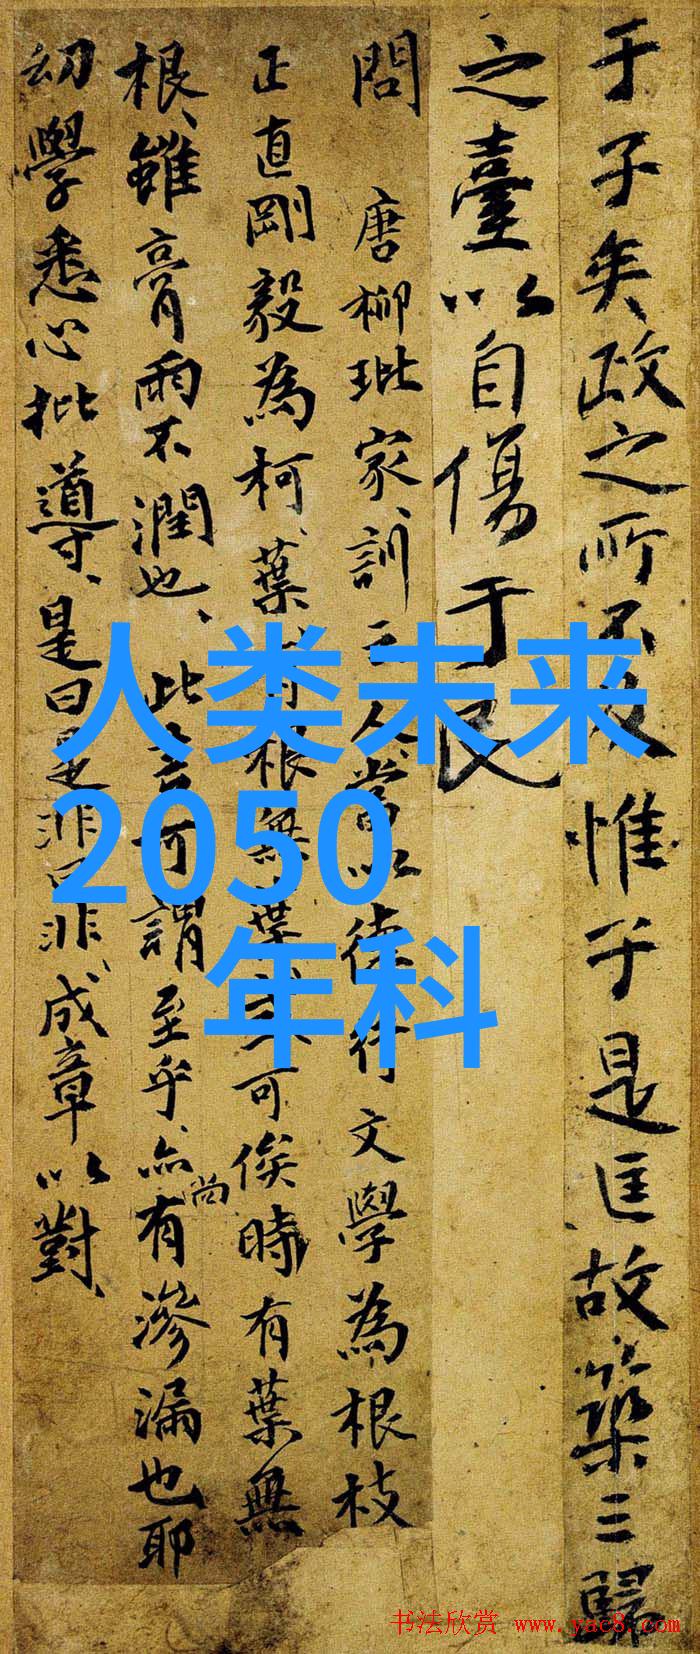 于子矣政之所不及惟于是匡故築三歸
之臺以自傷于民
問 唐柳玭家訓云人當以德行文學為根枝
正直剛毅為柯葉有根無葉或可俟時有葉無
根、雖膏雨不潤也、此言可謂至乎、亦尚有滲漏也耶
幼學悉心批導、是曰是非曰非、成章以對、
人类未来
2050
年科
书法欣赏 www.yac8.com